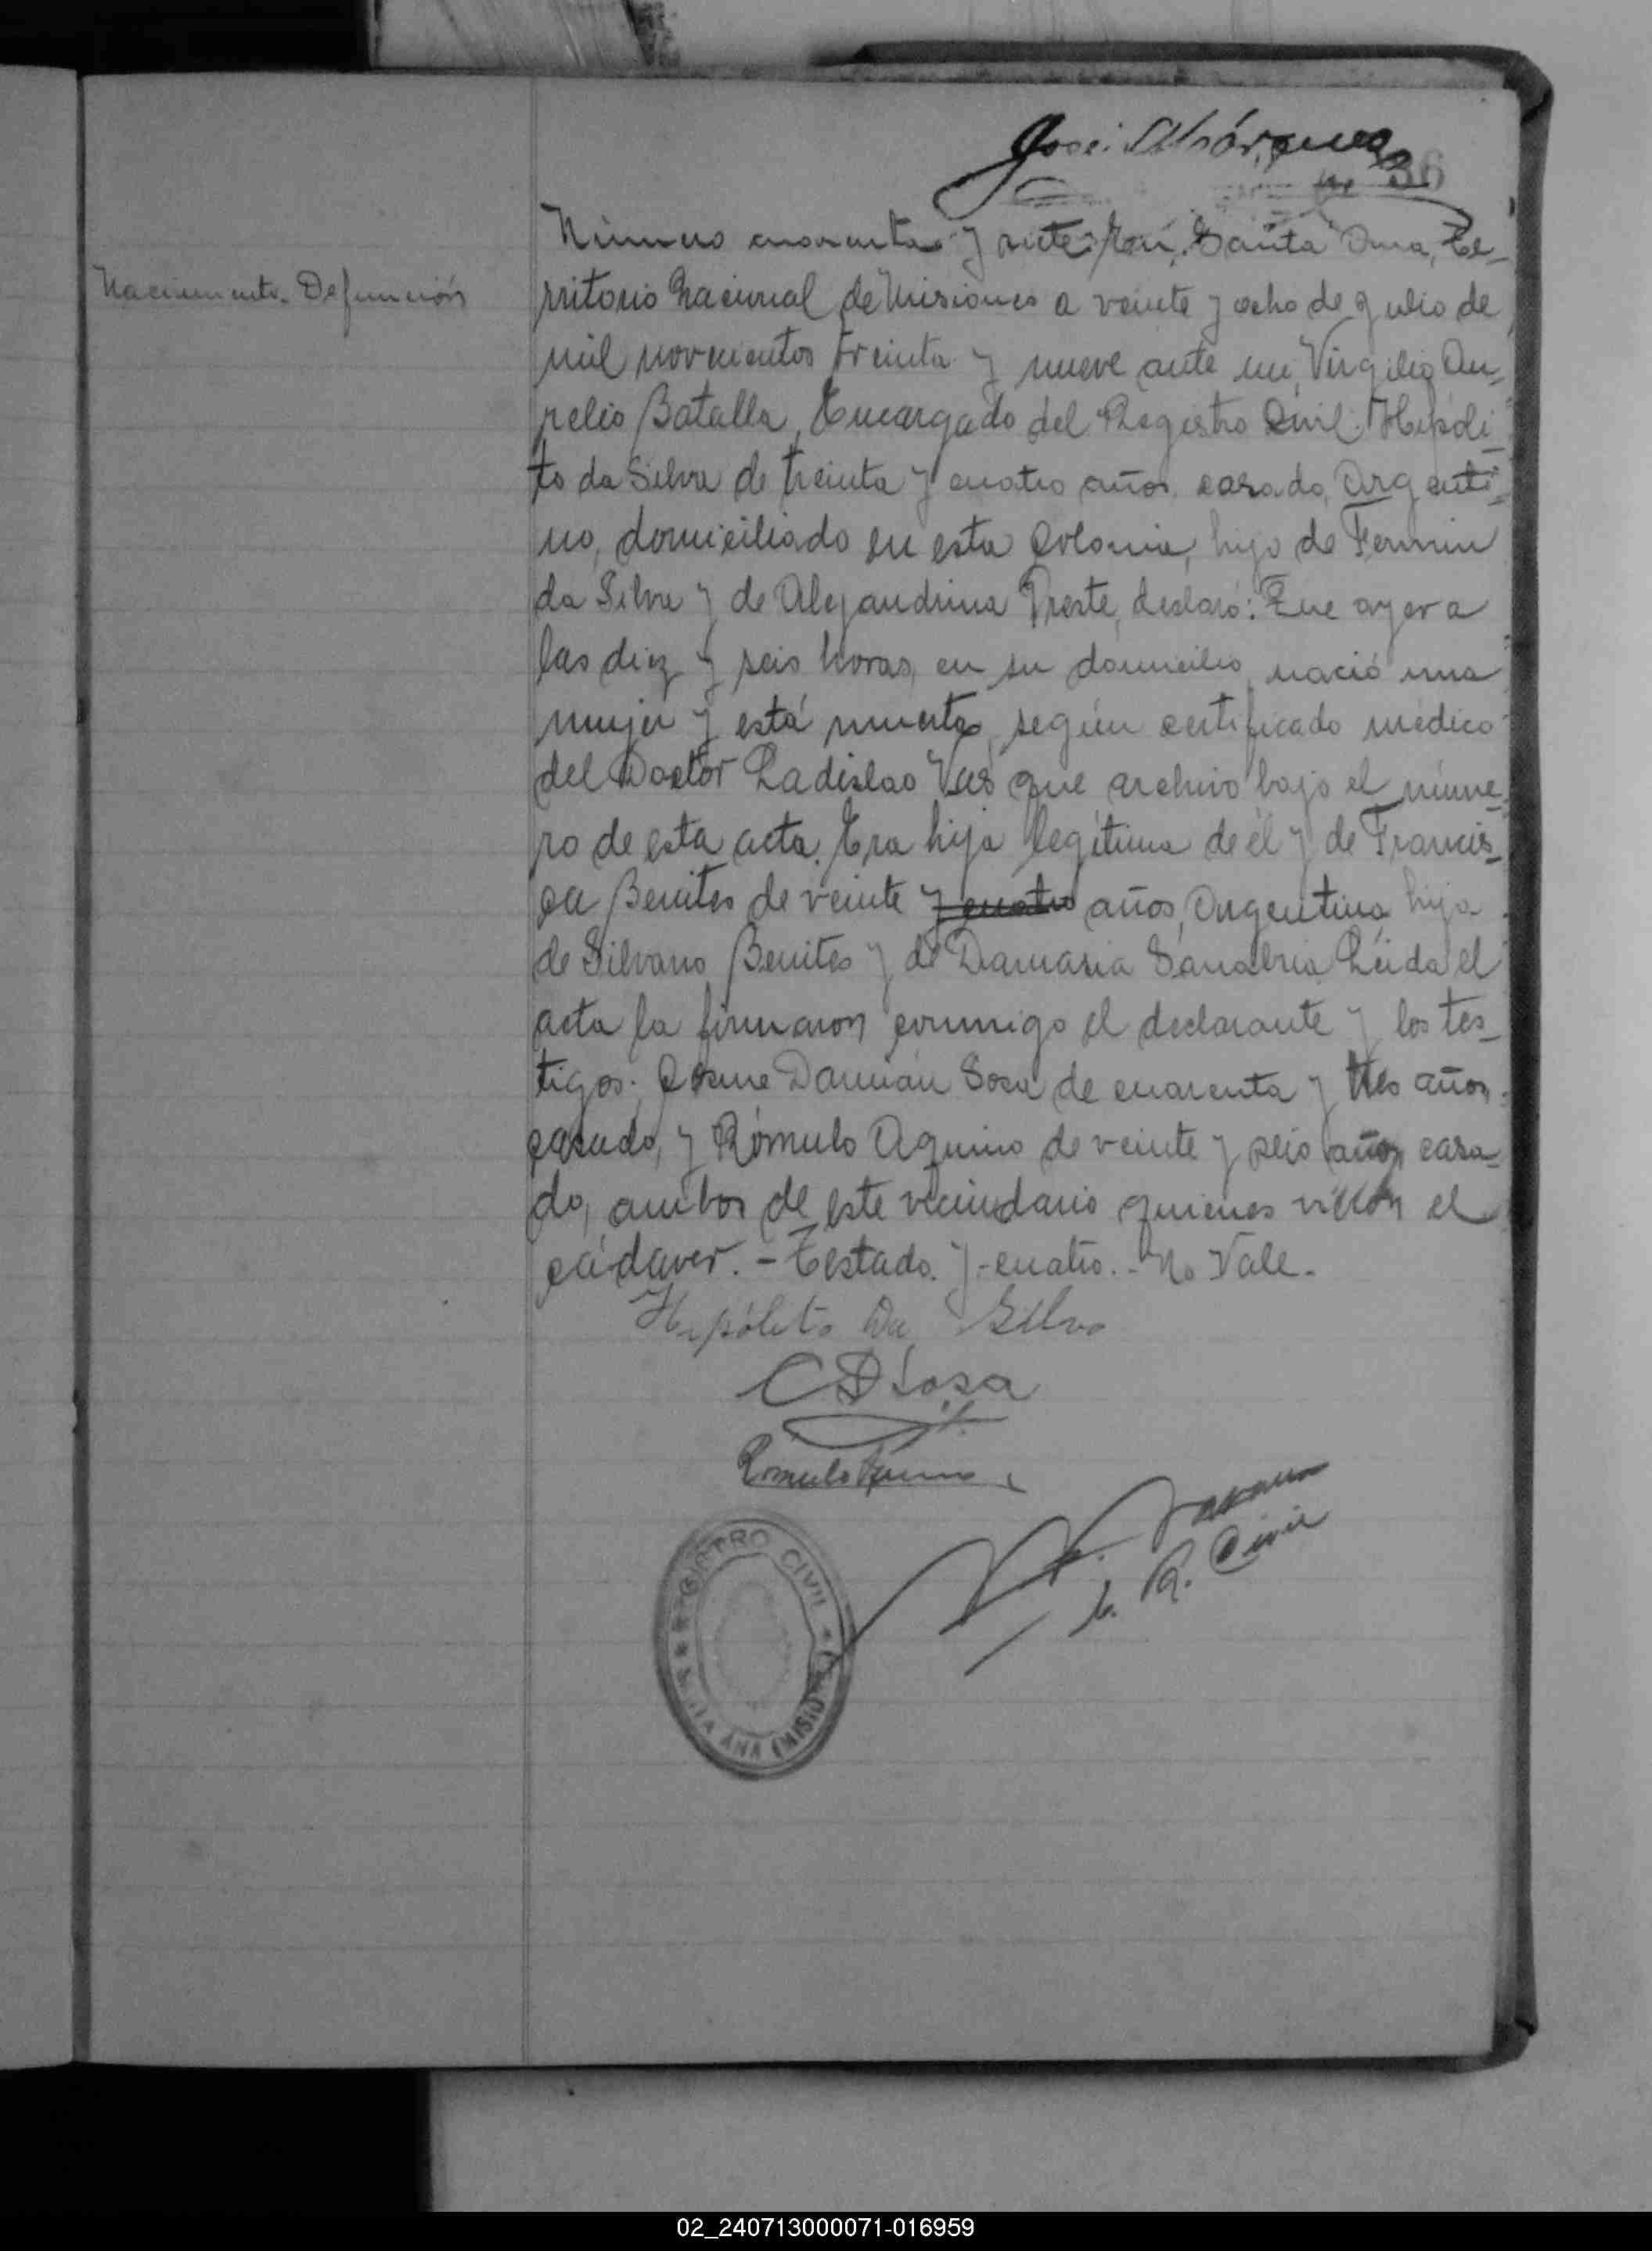 José Márquez
36
Número cuarenta y siete: En Santa Ana, Te-
Nacimiento. Defunción
rritorio Nacional de Misiones a veinte y ocho de Julio de
mil novecientos treinta y nueve ante mi, Virgilio Au-
relio Batalla, Encargado del Registro Civil. Hipóli-
to da Silva de treinta y cuatro años, casado, Argenti-
no, domiciliado en esta Colonia, hijo de Fermin
da Silva y de Alejandrina Preste, declaró: Que ayer a
las diez y seis horas, en su domicilio, nació una
mujer y está muerta, según certificado médico
del Doctor Ladislao Vas que archivo bajo el núme-
ro de esta acta. Era hija legítima de él y de Francis-
ca Benites de veinte y cuatro años, Argentina, hija
de Silvano Benites y de Damasia Sanabria. Leida el
acta la firmaron conmigo el declarante y los tes-
tigos: Cosme Damián Sosa de cuarenta y tres años,
casado, y Rómulo Aquino de veinte y seis años, casa-
do, ambos de este vecindario quienes vieron el
cádaver. - Testado. y - cuatro. - No Vale.
Hipólito Da Silva
CDSosa
Rómulo Aquino
E. R. Civil
REGISTRO CIVIL
SANTA ANA (MISIONES)
02_240713000071-016959